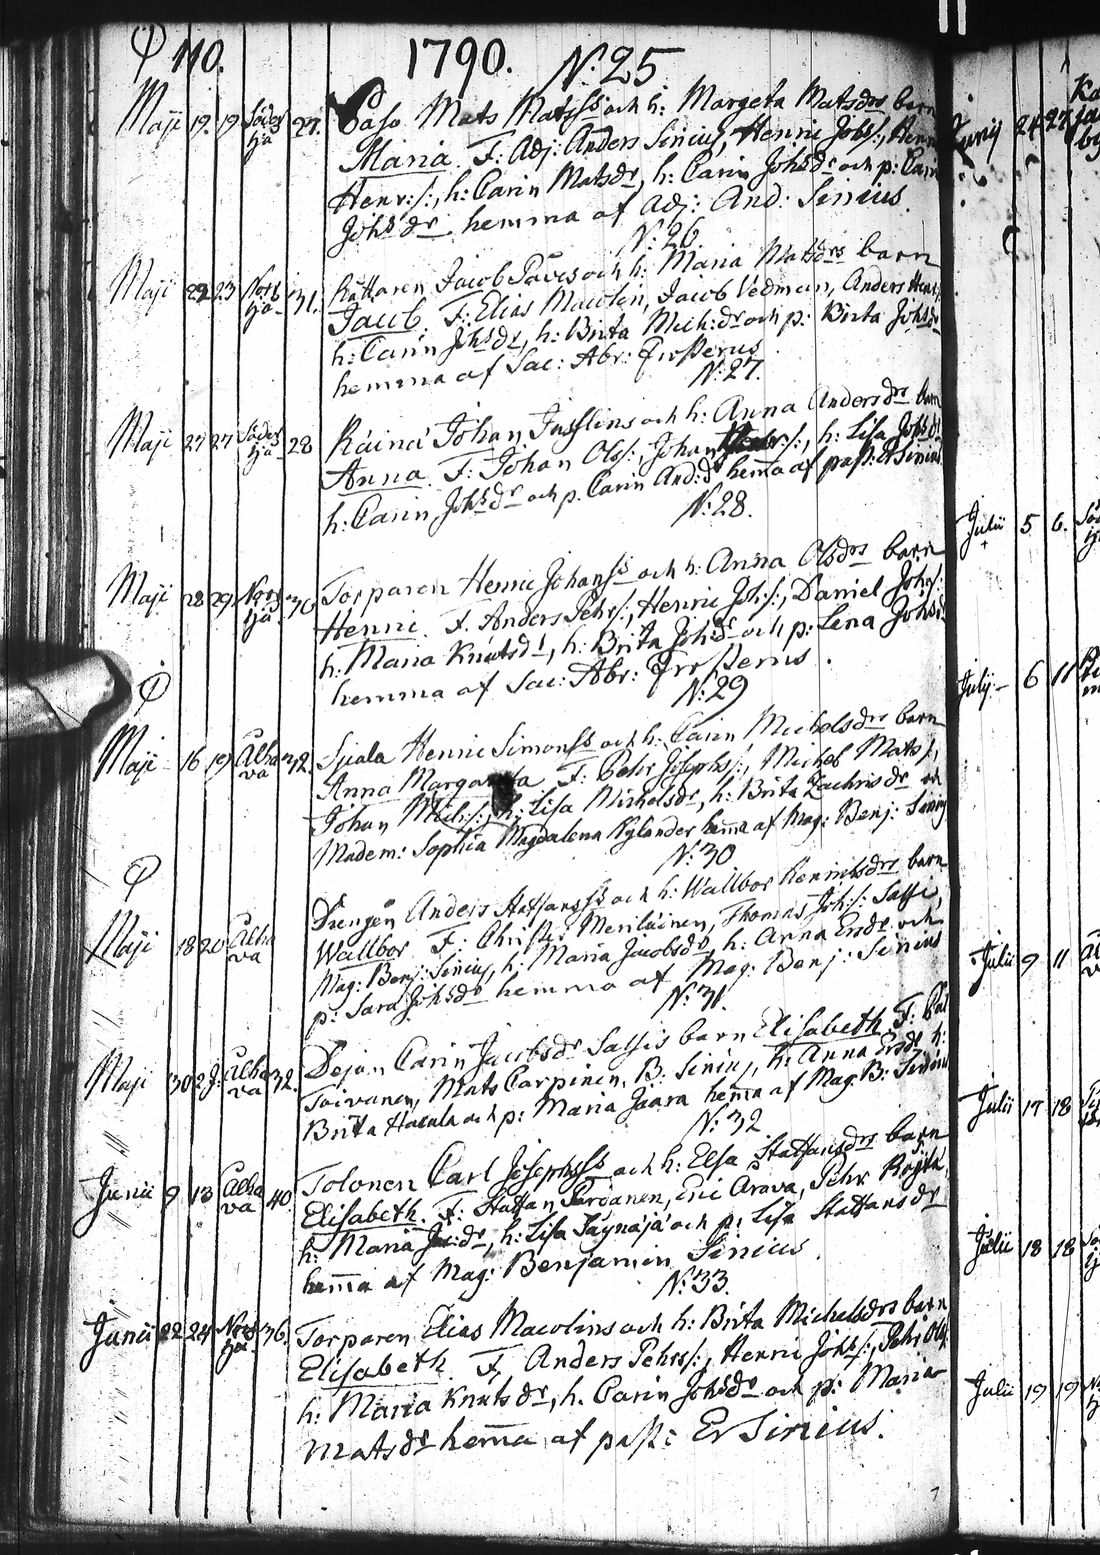 110. 1790. N:25
Maji 19. 19 Söder 27. Paso Mats Matsss och h: Margeta Matsdrs barn
tja Maria. F: Adj: Anders Sirius, Henric Johs/:, Henr
Henr:/:, h: Carin Matsdr, h: Carin Johsdr och p: Carin
Johsdr hemma af Adj: And: Sirius.
N:26.
Maji 22 23 Norr 31. Rättaren Jacob Påves och h: Maria Matsdrs barn
tja Jacob. F: Elias Macolin, Jacob Vedman, Anders Henr:
h: Carin Johsdr, h: Brita Mich:dr och p: Brita Johsdr
hemma af Sac: Abr:
N:27.
Maji 27 27 Söder 28 Räinä Johan och h: Anna Andersdrs barn
tja Anna. F: Johan Ols/:, Johan h: Lisa Johsdr
h: Carin Johsdr och p. Carin And:dr hema af past:
N:28.
Maji 28 29 Norr 30 Torparen Henric Johanss och h: Anna Olsdrs barn
tja Henric. F. Anders Pehrs/:, Henric Joh:/:, Daniel Johs/:
h: Maria Knutsdr, h: Brita Johsdr och p: Lena Johsdr
hemma af Sac: Abr:
N:29
Maji 16 19 Alha 32. Henric Simonss och h: Carin Michelsdrs barn
va Anna Margareta F: Pehr Josephs/:, Michel Mats/:,
Johan Mich:/:, h: Lisa Michelsdr, h: Brita Zachrisdr och
Madem: Sophia Magdalena Nylander hema af Mag: Benj: Sirius
N:30
Maji 18 20 Alha Drengen Anders Staffansss och h: Wallbor Henricsdrs barn
va Wallbor F: Christ: Meriläinen, Thomas Joh:/: Sassi,
Mag: Benj: Sirius, h: Maria Jacobsdr, h: Anna Ersdr och
p: Sara Johsdr hemma af Mag: Benj: Sirius
N:31.
Maji 30 Alha 32. Dejan Carin Jacobsdr Sassis barn Elisabeth F: Pål
va Toivanen, Mats Carpinen, B. Sirius, h: Anna Ersdr h:
Brita Hacala och p: Maria Jaara hema af Mag: B: Sirius
N:32
Junii 9 13 Alha 40. Tolonen Carl Josephsss och h: Elsa Staffansdrs barn
va Elisabeth. F: Staffan Pardanen, Eric Arava, Pehr
h: Maria Jac:dr, h: Lisa Säynäjä och p: Lisa Staffansdr
hema af Mag: Benjamin Sirius.
N:33.
Junii 22 24 Norr 36. Torparen Elias Macolins och h: Brita Michelsdrs barn
tja Elisabeth F, Anders Pehrs/:, Henric Johs/:, Pehr Ols/:
h: Maria Knutsdr, h. Carin Johsdr och p: Maria
Matsdr hema af past: Er Sirius.
Junij 24 27
Julii 5 6.
Julij 6 11
Julii 9 11
Julii 17 18
Julii 18 18
Julii 19 19